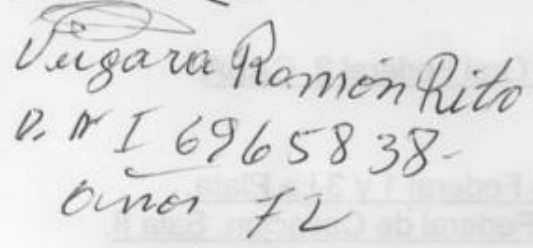 Vergara Ramón Rito
D. N I 6965838-
años 72